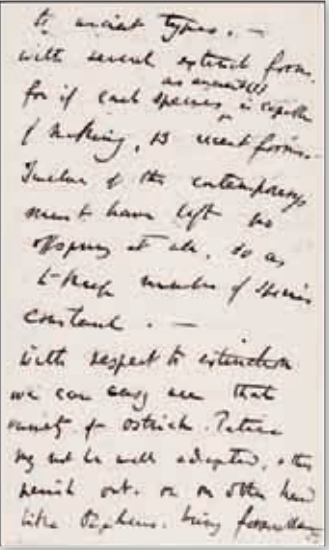 to ancient types. —
with several extinct forms,
as ancient (1)
for if each species is capable
of making, 13 recent forms. —
Twelve of the contemporarys
must have left no
offspring at all, so as
to keep number of species
constant. —
With respect to extinction
we can easy see that
variety of ostrich, Petise
may not be well adapted, & thus
perish out, or on other hand
like Orpheus. being favourable